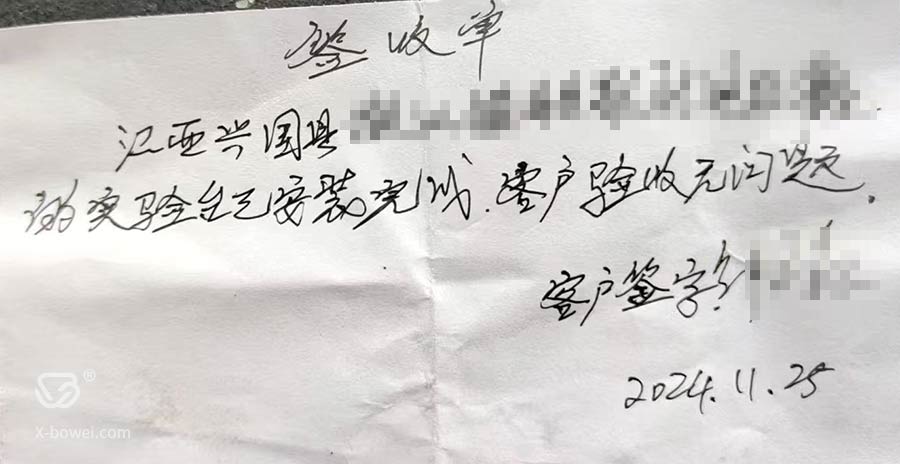 签收单
江西兴国县
的实验台已安装完成.客户验收无问题.
客户签字:
2024.11.25
®
X-bowei.com